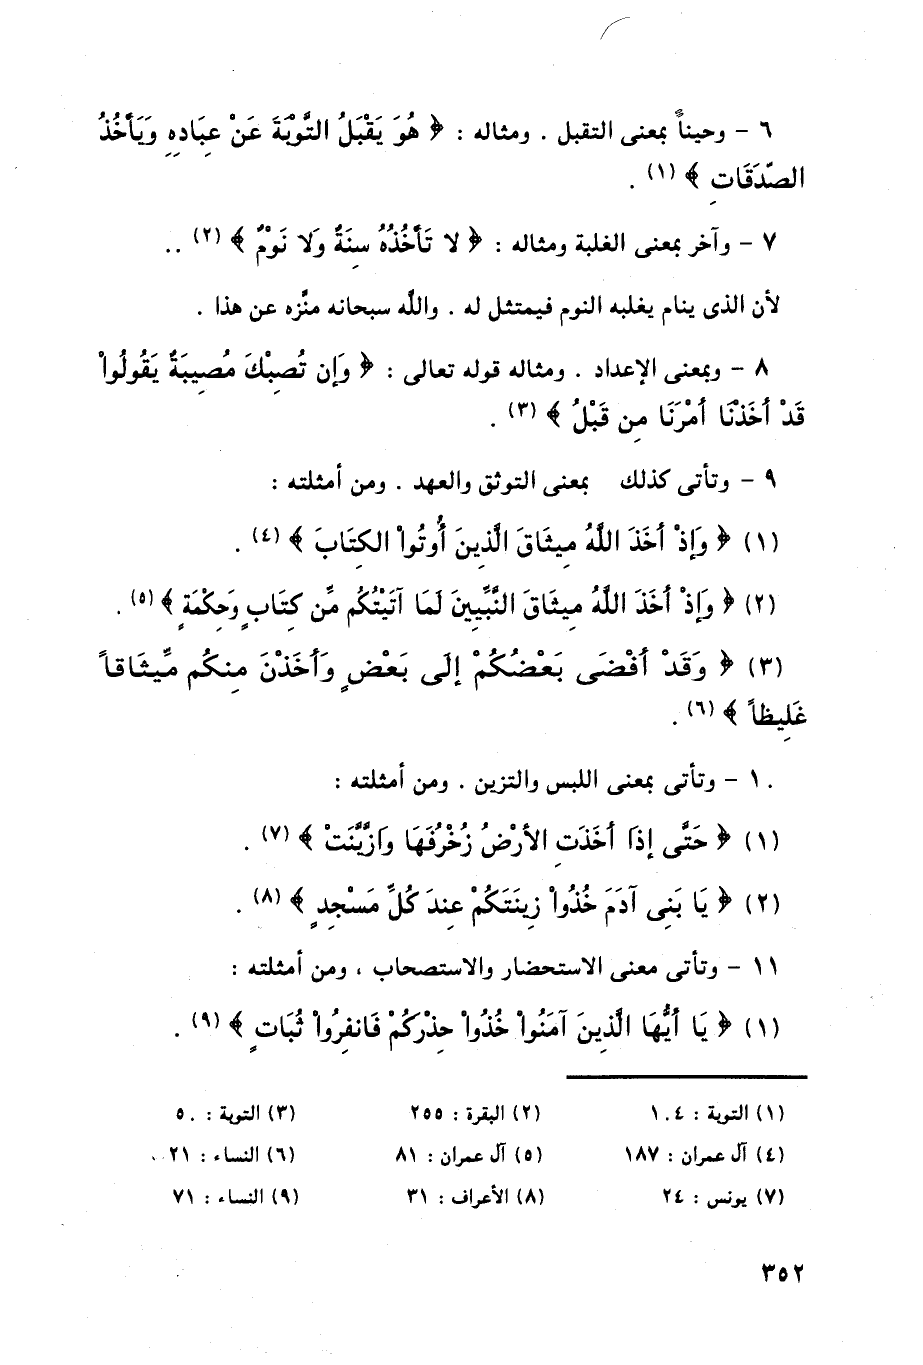 ٦ – وحيناً بمعنى التقبل . ومثاله : ﴿ هُوَ يَقْبَلُ التَّوْبَةَ عَنْ عِبَادِهِ وَيَأْخُذُ
الصَّدَقَاتِ ﴾ (١) .
٧ – وآخر بمعنى الغلبة ومثاله : ﴿ لا تَأْخُذُهُ سِنَةٌ وَلا نَوْمٌ ﴾ (٢) ..
لأن الذى ينام يغلبه النوم فيمتثل له . واللَّه سبحانه منَّزه عن هذا .
٨ – وبمعنى الإعداد . ومثاله قوله تعالى : ﴿ وَإِن تُصِبْكَ مُصِيبَةٌ يَقُولُواْ
قَدْ أَخَذْنَا أَمْرَنَا مِن قَبْلُ ﴾ (٣) .
٩ – وتأتى كذلك بمعنى التوثق والعهد . ومن أمثلته :
(١) ﴿ وَإِذْ أَخَذَ اللَّهُ مِيثَاقَ الَّذِينَ أُوتُواْ الكِتَابَ ﴾ (٤) .
(٢) ﴿ وَإِذْ أَخَذَ اللَّهُ مِيثَاقَ النَّبِّيِينَ لَمَا آتَيْتُكُم مِّن كِتَابٍ وَحِكْمَةٍ ﴾ (٥) .
(٣) ﴿ وَقَدْ أَفْضَى بَعْضُكُمْ إلَى بَعْضٍ وَأَخَذْنَ مِنكُم مِّيثَاقاً
غَلِيظاً ﴾ (٦) .
١٠ – وتأتى بمعنى اللبس والتزين . ومن أمثلته :
(١) ﴿ حَتَّى إذَا أَخَذَتِ الأرْضُ زُخْرُفَهَا وَازَّيَّنَتْ ﴾ (٧) .
(٢) ﴿ يَا بَنِى آدَمَ خُذُواْ زِينَتَكُمْ عِندَ كُلِّ مَسْجِدٍ ﴾ (٨) .
١١ – وتأتى معنى الاستحضار والاستصحاب ، ومن أمثلته :
(١) ﴿ يَا أَيُّهَا الَّذِينَ آمَنُواْ خُذُواْ حِذْرَكُمْ فَانفِرُواْ ثُبَاتٍ ﴾ (٩) .
(١) التوبة : ١٠٤ (٢) البقرة : ٢٥٥ (٣) التوبة : ٥٠
(٤) آل عمران : ١٨٧ (٥) آل عمران : ٨١ (٦) النساء : ٢١
(٧) يونس : ٢٤ (٨) الأعراف : ٣١ (٩) النساء : ٧١
٣٥٢